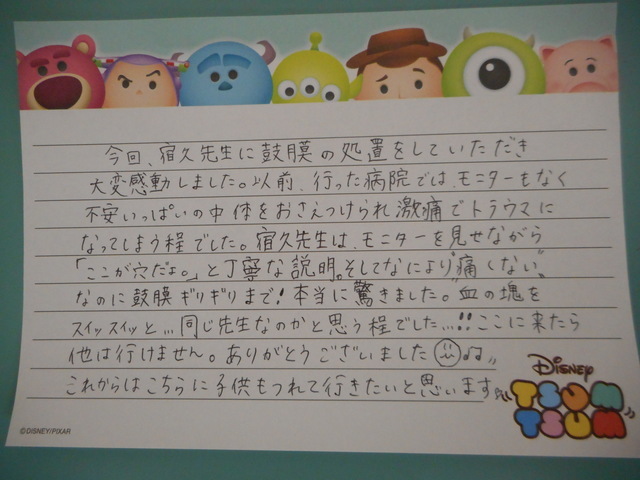 今回、宿久先生に鼓膜の処置をしていただき
大変感動しました。以前、行った病院では、モニターもなく
不安いっぱいの中体をおさえつけられ激痛でトラウマに
なってしまう程でした。宿久先生は、モニターを見せながら
「ここが穴だよ。」と丁寧な説明。そしてなにより"痛くない"
なのに鼓膜ギリギリまで!本当に驚きました。血の塊を
スイッスイッと…同じ先生なのかと思う程でした…!!ここに来たら
他は行けません。ありがとうございました
これからはこちらに子供もつれて行きたいと思います
DISNEY
TSUM
TSUM
©DISNEY/PIXAR